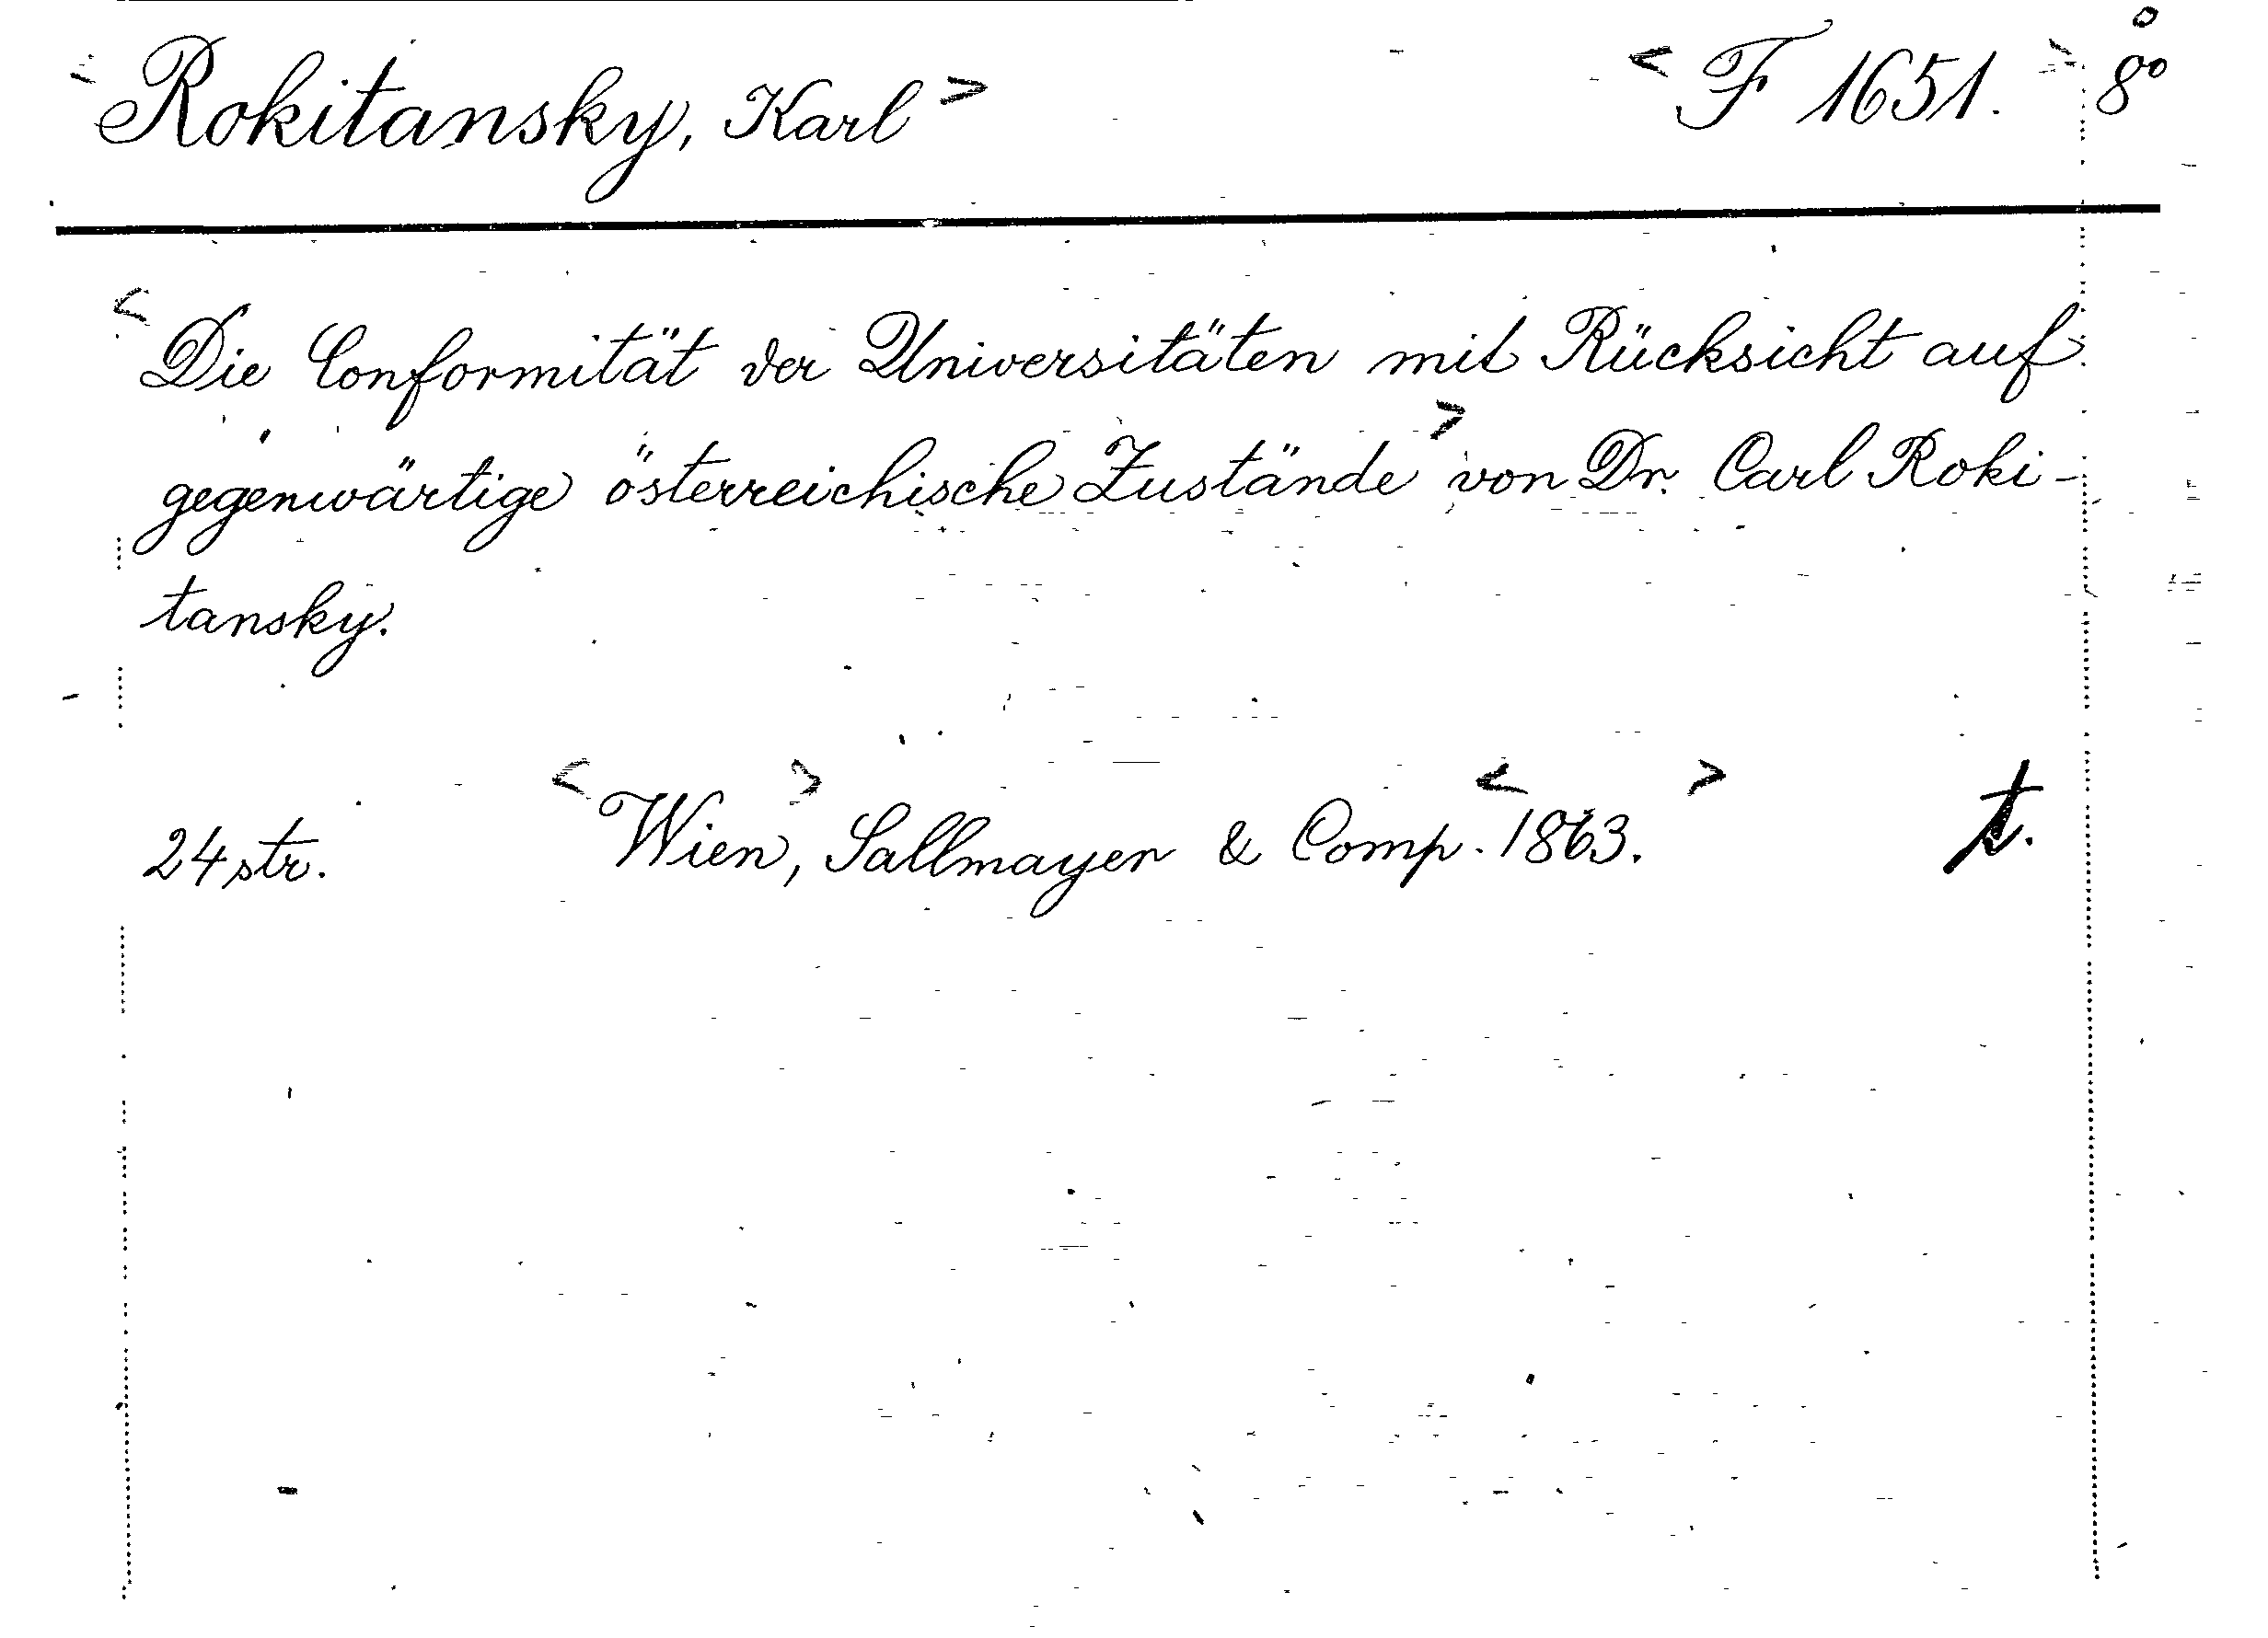 < Rokitansky, Karl > < F 1651. > 8°
< Die Conformität der Universitäten mit Rücksicht auf
gegenwärtige österreichische Zustände > von Dr. Carl Roki-
tansky.
24 str. < Wien, > Sallmayer & Comp. < 1863. > t.